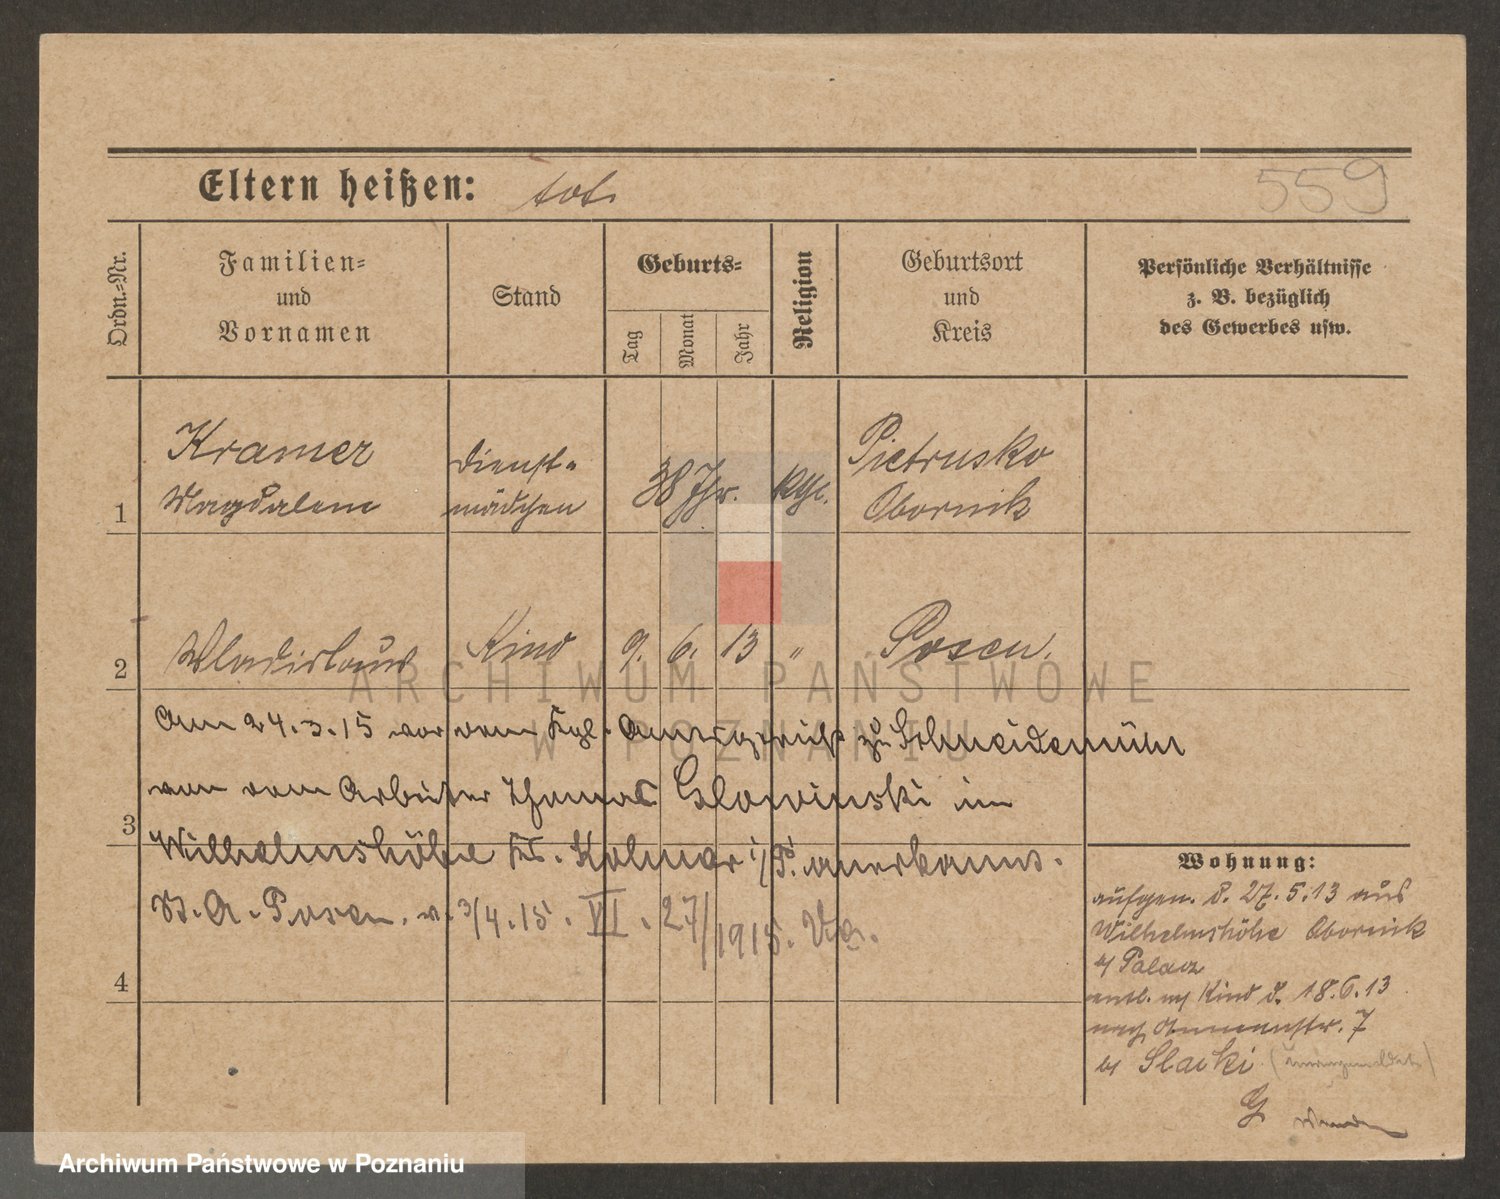 559
Eltern heißen: tot.
Ordn.-Nr.
Familien-
und
Vornamen
Stand
Geburts-
Tag
Monat
Jahr
Religion
Geburtsort
und
Kreis
Persönliche Verhältnisse
z. B. bezüglich
des Gewerbes usw.
1
Kramer
Magdalene
Dienst-
mädchen
38 Jhr.
kth.
Pietrusko
Obornik
2
Wladislaus
Kind
9. 6. 13
"
Posen.
ARCHIWUM PAŃSTWOWE
W POZNANIU
Am 24.3.15 vor dem Kgl. Amtsgericht zu Schneidemühl
von dem Arbeiter Thomas Glowinski in
3
Wilhelmshöhe Kr. Kolmar i/P. anerkannt.
St. A. Posen. v. 3/4.15. VI. 27/1915.
4
Wohnung:
aufgen. d. 27.5.13 aus
Wilhelmshöhe Obornik
b/ Palacz
entl. m/ Kind d. 18.6.13
nach 7
b/ Slacki
G
Archiwum Państwowe w Poznaniu